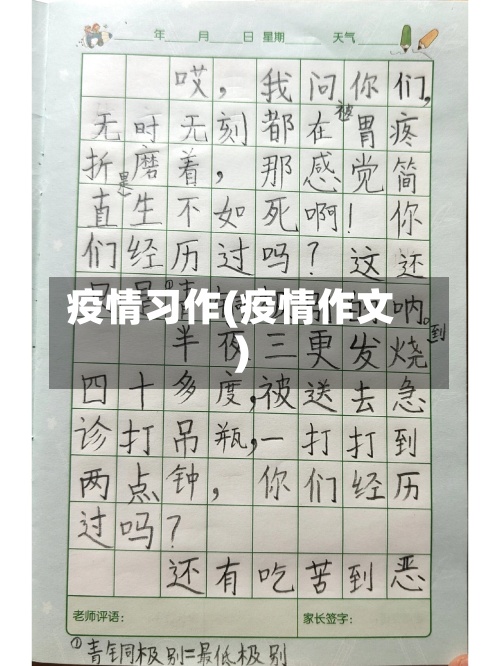 年 月 日 星期 天气
哎，我问你们，
无时无刻都在被胃疼
折磨着，那感觉简
直是生不如死啊！你
们经历过吗？这还
呐。
疫情习作(疫情作文
)
半夜三更发烧到
四十多度，被送去急
诊打吊瓶，一打打到
两点钟，你们经历
过吗？
还有吃苦到恶
老师评语： 家长签字：
①青铜极别=最低极别